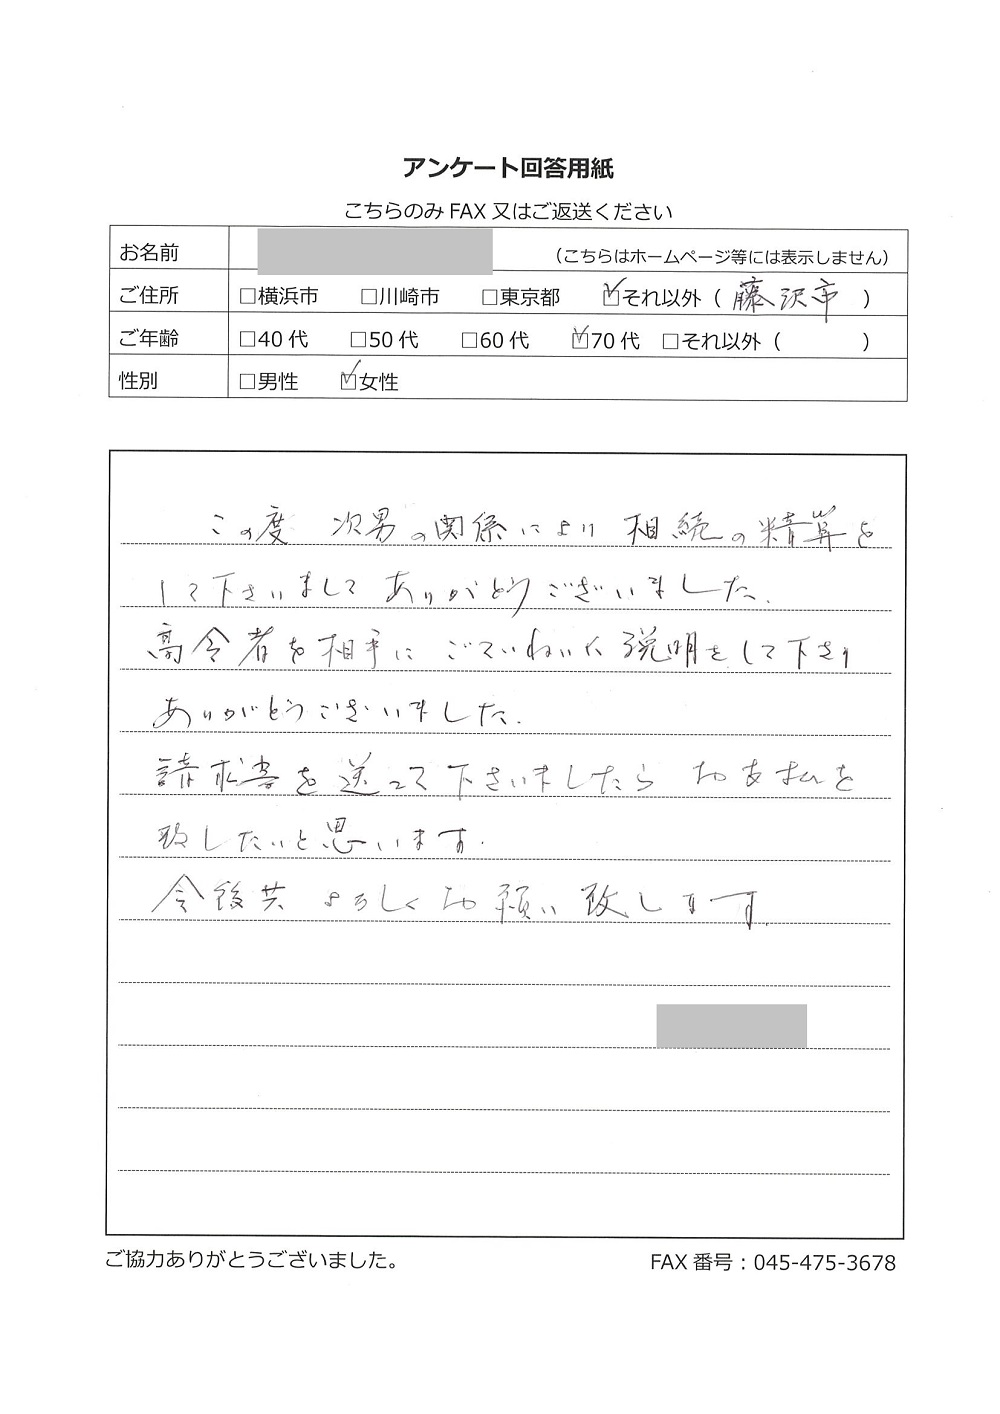 アンケート回答用紙
こちらのみ FAX 又はご返送ください
お名前 （こちらはホームページ等には表示しません）
ご住所 □横浜市 □川崎市 □東京都 ☑それ以外（ 藤沢市 ）
ご年齢 □40 代 □50 代 □60 代 ☑70 代 □それ以外（ ）
性別 □男性 ☑女性
この度 次男の関係により 相続の精算を
して下さいまして ありがとうございました.
高令者を相手に ごていねいな説明をして下さり
ありがとうございました.
請求書を送って下さいましたら お支払を
致したいと思います.
今後共 よろしくお願い致します.
ご協力ありがとうございました。
FAX 番号：045-475-3678